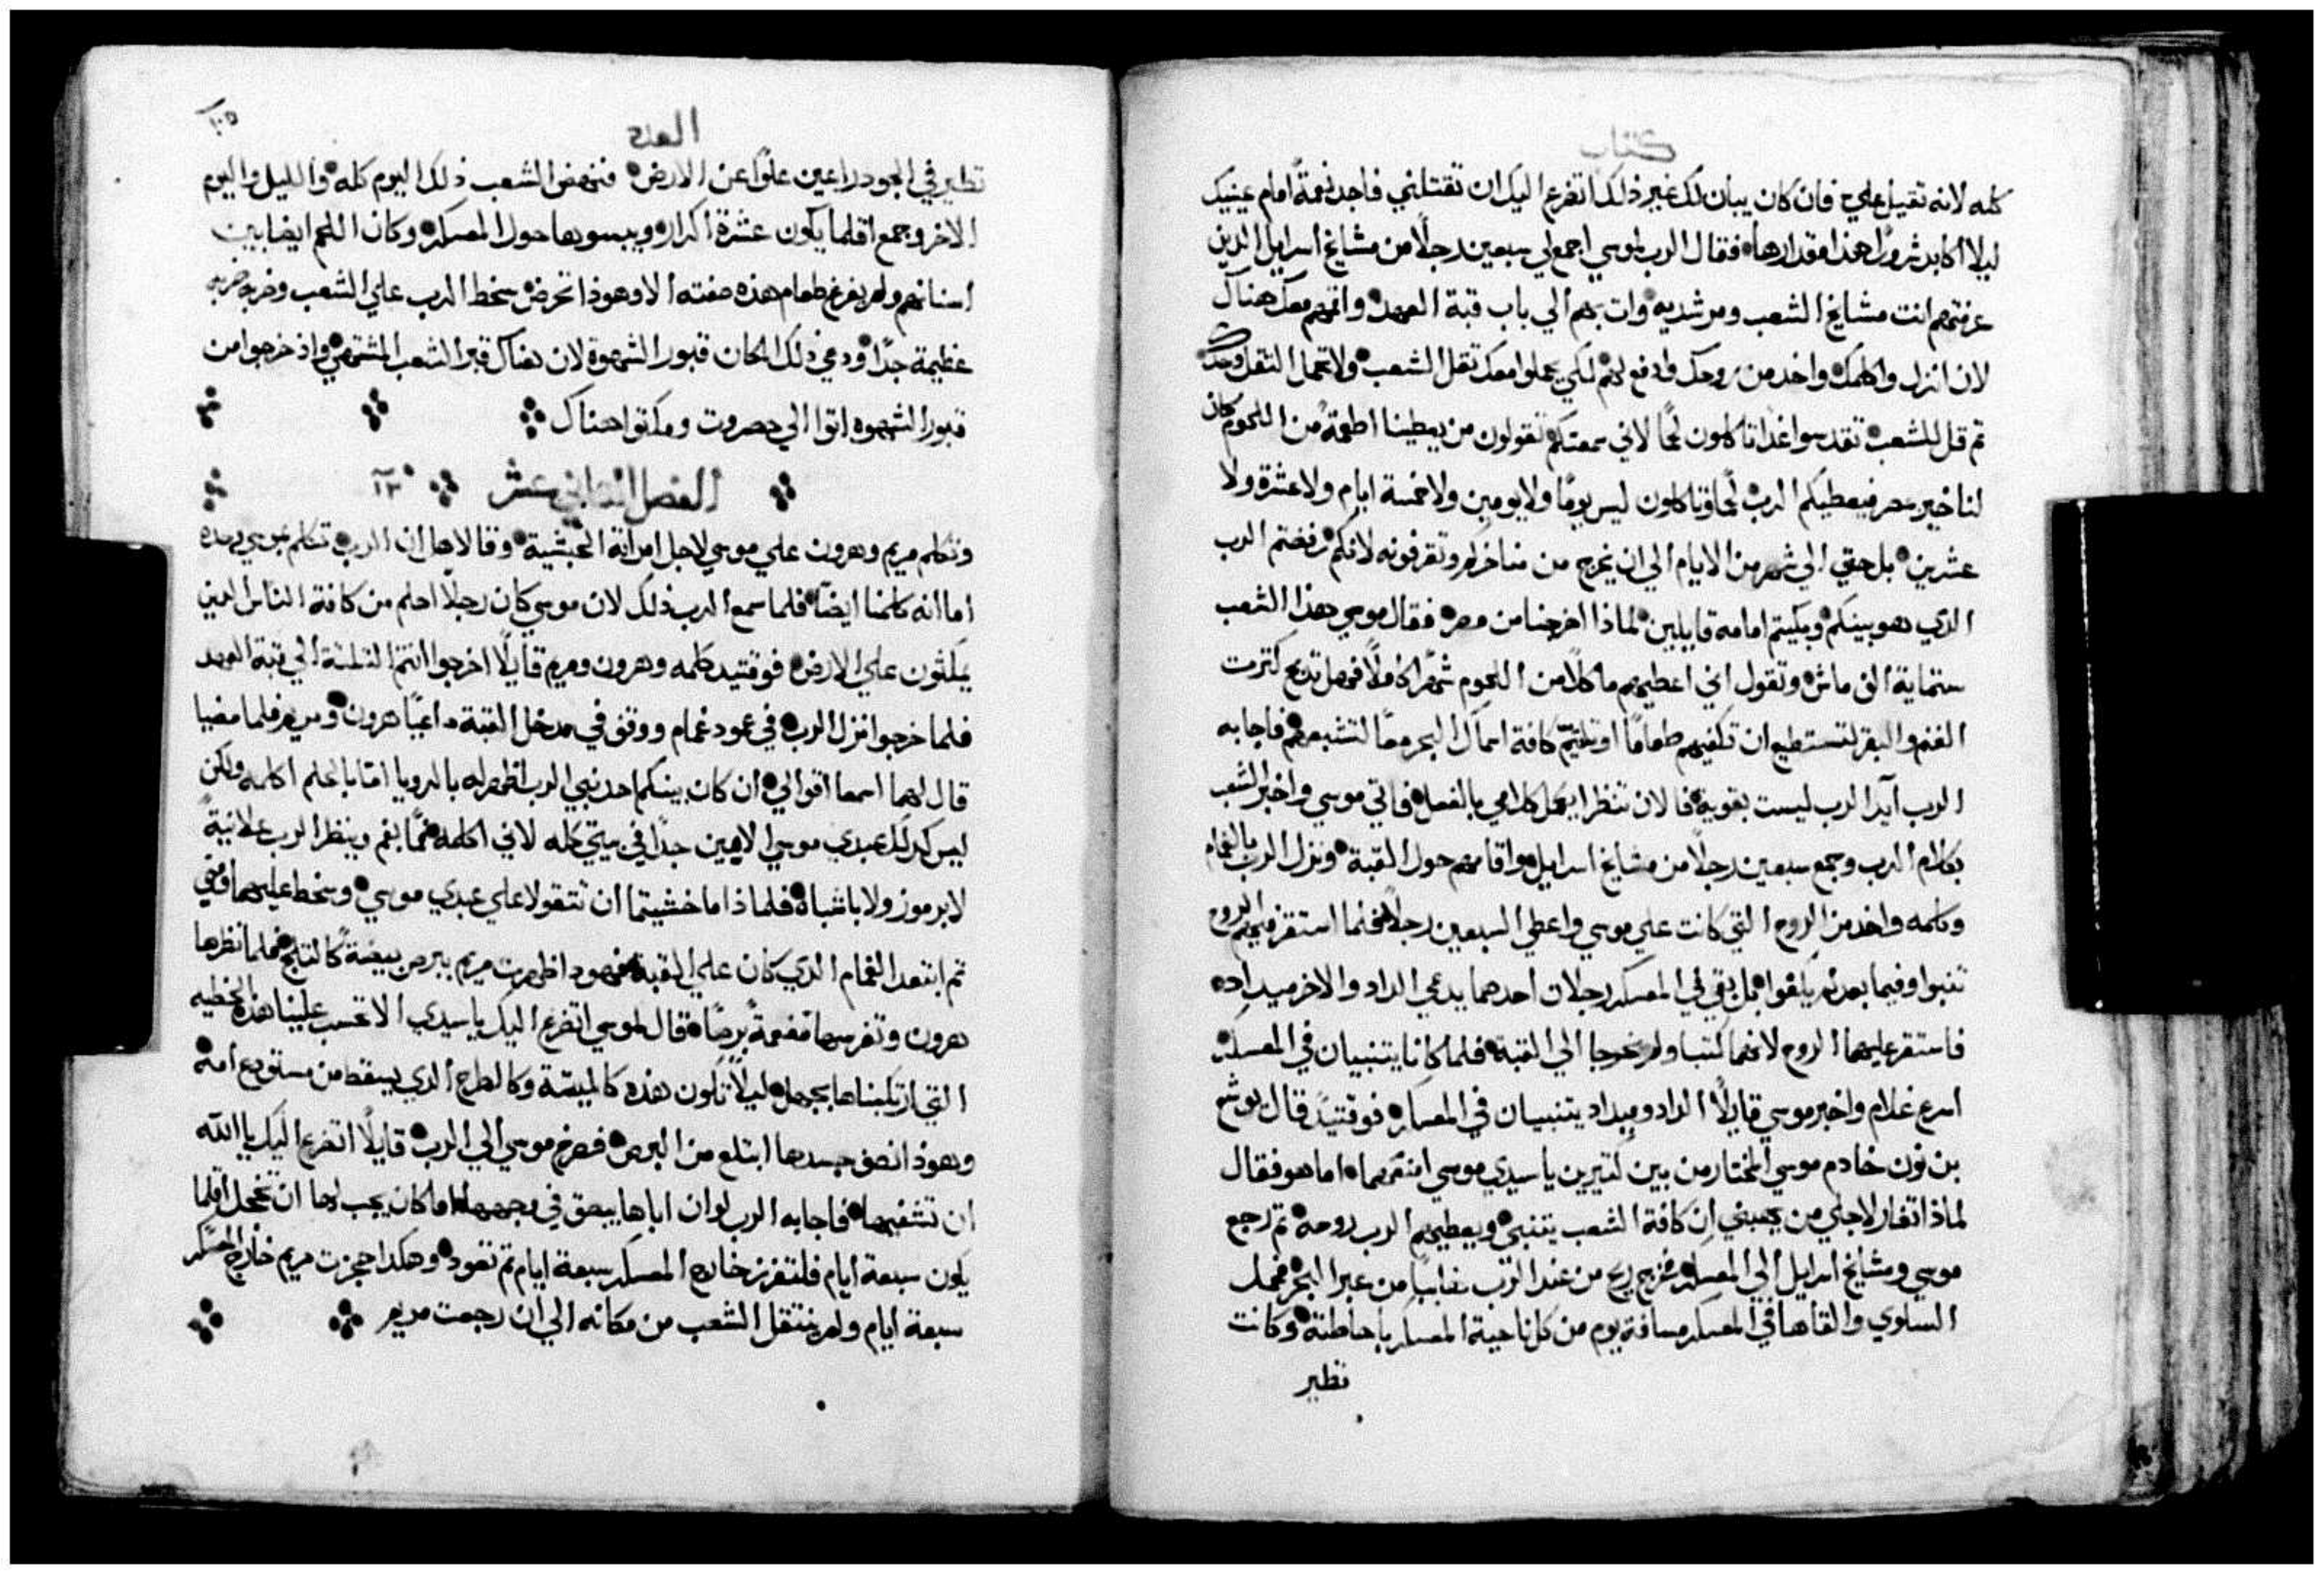 كتاب
كله لانه ثقيل علي فان كان يبان لك غير ذلك اتضرع اليك ان تقتلني فاجد نعمةً امام عينيك
ليلا اكابد شرورًا هذا مقدارها فقال الرب لموسي اجمع لي سبعين رجلًا من مشايخ اسرايل الذين
عرفتهم انت مشايخ الشعب ومرشديه وات بهم الي باب قبة العهد واقمهم معك هناك
لان انزل واكلمك واخد من روحك وادفع لهم لكي يحملوا معك ثقل الشعب ولا تحمل الثقل وحدك
ثم قل للشعب تقدسوا غدًا تاكلون لحمًا لاني سمعتكم تقولون من يعطينا اطعمة من اللحوم كان
لنا خير بمصر فيعطيكم الرب لحمًا وتاكلون ليس يومًا ولا يومين ولا خمسة ايام ولا عشرة ولا
عشرين بل حتي الي شهر من الايام الي ان يخرج من مناخركم وتقرفونه لانكم رفضتم الرب
الذي هو بينكم وبكيتم امامه قايلين لماذا اخرجنا من مصر فقال موسي هذا الشعب
ستماية الف ماش وتقول اني اعطيهم ماكلًا من اللحوم شهرًا كاملًا فهل تدبح كثرت
الغنم والبقر لتستطيع ان تكفيهم طعامًا او تلتيم كافة اسماك البحر معًا لتشبعهم فاجابه
الرب آيد الرب ليست بقوية فالان تنظر ايكمل كلامي بالفعل فاتي موسي واخبر الشعب
بكلام الرب وجمع سبعين رجلًا من مشايخ اسرايل واقامهم حول القبة ونزل الرب بالغمام
وكلمه واخد من الروح التي كانت علي موسي واعطي السبعين رجلًا فحينما استقر فيهم الروح
تنبوا وفيما بعد لم يكفوا بل بقي في المعسكر رجلان احدهما يدعي الداد والاخر ميداد
فاستقر عليهما الروح لانهما كتبا ولم يخرجا الي القبة فلما كانا يتنبيان في المعسكر
اسرع غلام واخبر موسي قايلًا الداد وميداد يتنبيان في المعسكر فوقتيدٍ قال يوشع
بن نون خادم موسي المختار من بين كتيرين يا سيدي موسي امنعهما اما هو فقال
لماذا تغار لاجلي من يعطيني ان كافة الشعب يتنبي ويعطيهم الرب روحه ثم رجع
موسي ومشايخ اسرايل الي المعسكر فخرج ريح من عند الرب من عبر البحر فحمل
السلوي والقاها في المعسكر مسافة يوم من كل ناحية المعسكر باحاطته وكانت
تطير
العدد
١٠٥
تطير في الجو دراعين علوًا عن الارض فنهض الشعب ذلك اليوم كله والليل واليوم
الاخر وجمع اقلما يكون عشرة اكرار ويبسوها حول المعسكر وكان اللحم ايضا بين
اسنانهم ولم يفرغ طعام هذه صفته الا وهوذا تحرض سخط الرب علي الشعب وضربه ضربه
عظيمة جدًا ودعي ذلك المكان قبور الشهوة لان هناك قبر الشعب المشتهي واذ خرجوا من
قبور الشهوه اتوا الي حصروت ومكثوا هناك
الفصل الثاني عشر ١٢
وتكلم مريم وهرون علي موسي لاجل امراته الحبشية وقالا هل ان الرب تكلم بموسي وحده
اما انه كلمنا ايضًا فلما سمع الرب ذلك لان موسي كان رجلًا احلم من كافة الناس الدين
يمكثون علي الارض فوقتيد كلمه وهرون ومريم قايلًا اخرجوا انتم التلتة الي قبة العهد
فلما خرجوا نزل الرب في عمود غمام ووقف في مدخل القبة داعيًا هرون ومريم فلما مضيا
قال لهما اسمعا اقوالي ان كان بينكم احد نبي الرب اظهر له بالرويا او بالحلم اكلمه ولكن
ليس كدلك عبدي موسي الامين جدًا في بيتي كله لاني اكلمه فمًا بفم وينظر الرب علانيةً
لا برموز ولا باشباه فلماذا ما خشيتما ان تتقولا علي عبدي موسي وسخط عليهما ومضي
ثم ابتعد الغمام الدي كان علي القبة فهوذا ظهرت مريم ببرص بيضةً كالتلج فلما نظرها
هرون وتفرسها مفعمةً برصًا قال لموسي اتضرع اليك يا سيدي الا تحسب علينا هذه الخطيه
التي ارتكبناها بجهل ليلًا تكون هذه كالميتة وكالطرح الدي يسقط من مستودع امه
وهوذا نصف جسدها ابتلع من البرص فصرخ موسي الي الرب قايلًا اتضرع اليك يا الله
ان تشفيها فاجابه الرب لو ان اباها يبصق في وجهها اما كان يجب لها ان تخجل اقلما
يكون سبعة ايام فلتفرز خارج المعسكر سبعة ايام ثم تعود وهكذا حجزت مريم خارج المعسكر
سبعة ايام ولم ينتقل الشعب من مكانه الي ان رجعت مريم